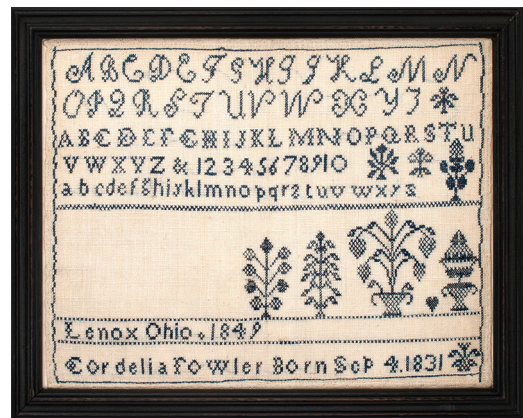 A B C D E F G H I J K L M N
O P Q R S T U V W X Y Z
A B C D E F G H I J K L M N O P Q R S T U
V W X Y Z & 1 2 3 4 5 6 7 8 9 10
a b c d e f g h i j k l m n o p q r s t u v w x y z
Lenox Ohio. 1849
Cordelia Fowler Born Sep 4. 1831